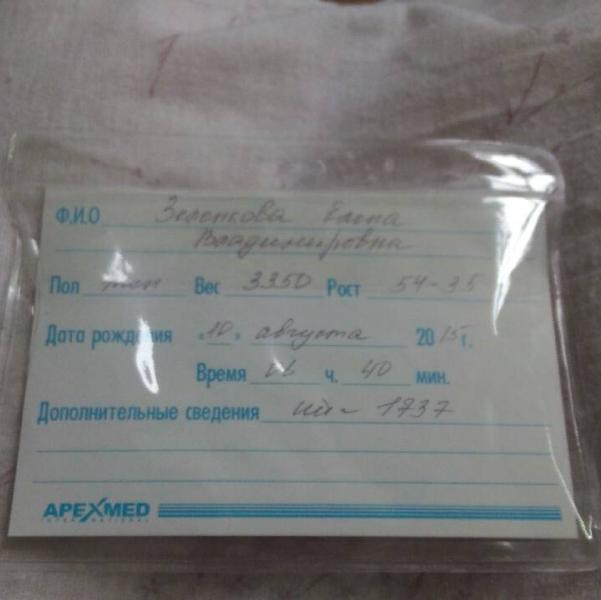 Ф.И.О Зеленкова Елена
Владимировна
Пол Вес 3350 Рост 54-35
Дата рождения «10» августа 2015г.
Время ч. 40 мин.
Дополнительные сведения 1737
APEXMED
INTERNATIONAL